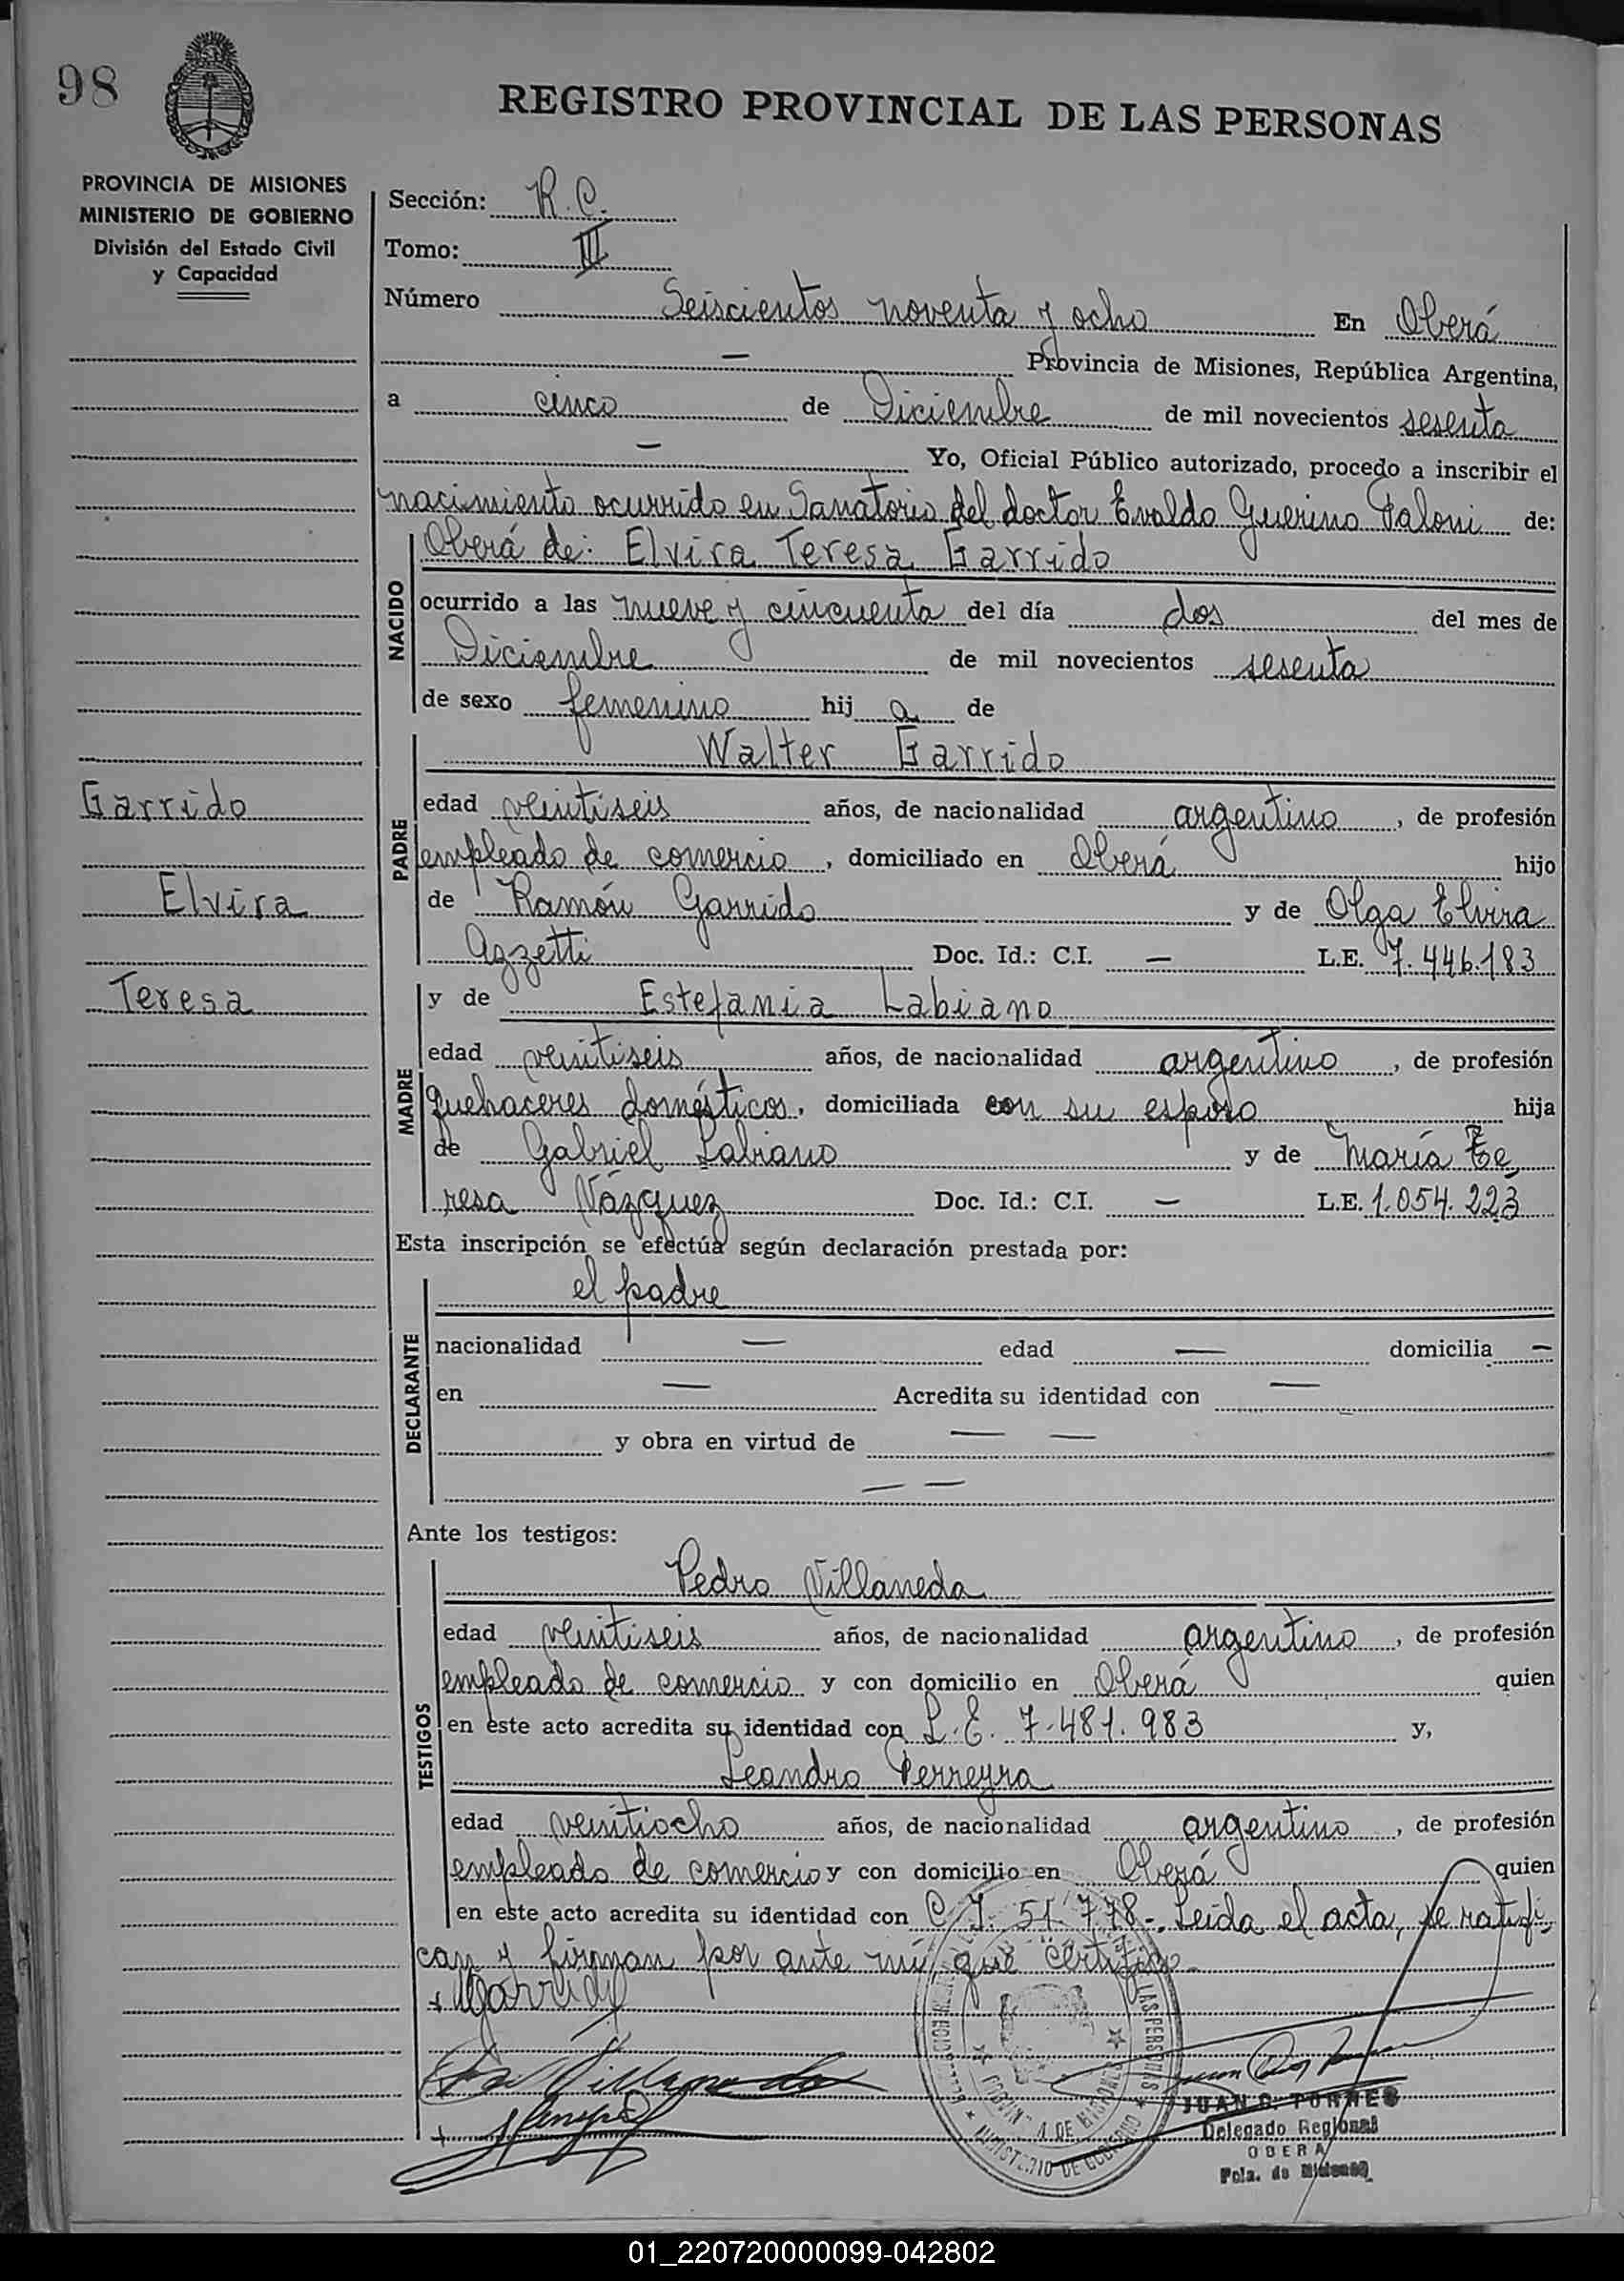 98
REGISTRO PROVINCIAL DE LAS PERSONAS
PROVINCIA DE MISIONES
MINISTERIO DE GOBIERNO
División del Estado Civil
y Capacidad
Sección: R.C.
Tomo: III
Número Seiscientos noventa y ocho En Oberá
— Provincia de Misiones, República Argentina,
a cinco de Diciembre de mil novecientos sesenta
— Yo, Oficial Público autorizado, procedo a inscribir el
nacimiento ocurrido en Sanatorio del doctor Evaldo Guerino Paloni de:
Oberá de: Elvira Teresa Garrido
NACIDO
ocurrido a las nueve y cincuenta del día dos del mes de
Diciembre de mil novecientos sesenta
de sexo femenino hij a de
Walter Garrido
Garrido
Elvira
Teresa
PADRE
edad veintiseis años, de nacionalidad argentino, de profesión
empleado de comercio, domiciliado en Oberá hijo
de Ramón Garrido y de Olga Elvira
Azzetti Doc. Id.: C.I. — L.E. 7.446.183
y de Estefania Labiano
MADRE
edad veintiseis años, de nacionalidad argentino, de profesión
quehaceres domésticos, domiciliada con su esposo hija
de Gabriel Labiano y de María Te
resa Vázquez Doc. Id.: C.I. — L.E. 1.054.223
Esta inscripción se efectúa según declaración prestada por:
el padre
DECLARANTE
nacionalidad — edad — domicilia —
en — Acredita su identidad con —
y obra en virtud de — —
— —
Ante los testigos:
Pedro Villaneda
TESTIGOS
edad veintiseis años, de nacionalidad argentino, de profesión
empleado de comercio y con domicilio en Oberá quien
en este acto acredita su identidad con L.E. 7.481.983 y,
Leandro Perreyra
edad veintiocho años, de nacionalidad argentino, de profesión
empleado de comercio y con domicilio en Oberá quien
en este acto acredita su identidad con C.I. 51.778-. Leida el acta, se ratifi
can y firman por ante mí que certifico
Garrido
Villaneda
MINISTERIO DE GOBIERNO
JUAN TORRES
Delegado Regional
OBERA
Pcia. de Misiones
01_220720000099-042802